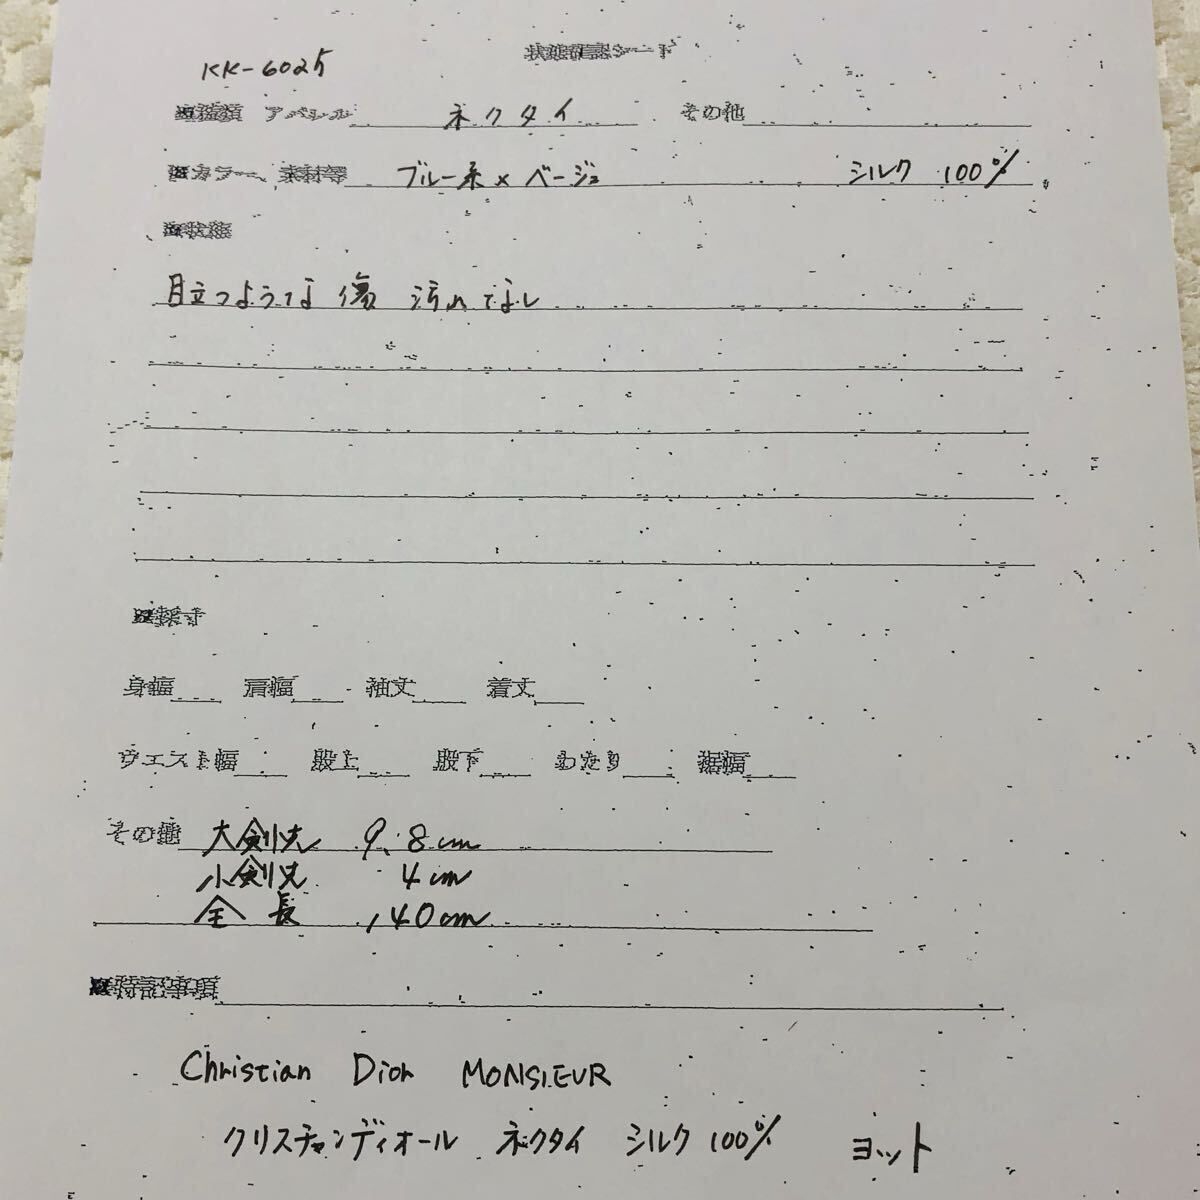 状態確認シート
KK-6025
※種類 アパレル ネクタイ その他
※カラー、素材等 ブルー系×ベージュ シルク 100%
※状態
目立つような 傷 汚れ なし
※採寸
身幅 肩幅 袖丈 着丈
ウエスト幅 股上 股下 わたり 裾幅
その他 大剣先 9.8cm
小剣先 4cm
全長 140cm
※特記事項
Christian Dior MONSIEUR
クリスチャンディオール ネクタイ シルク 100% ヨット